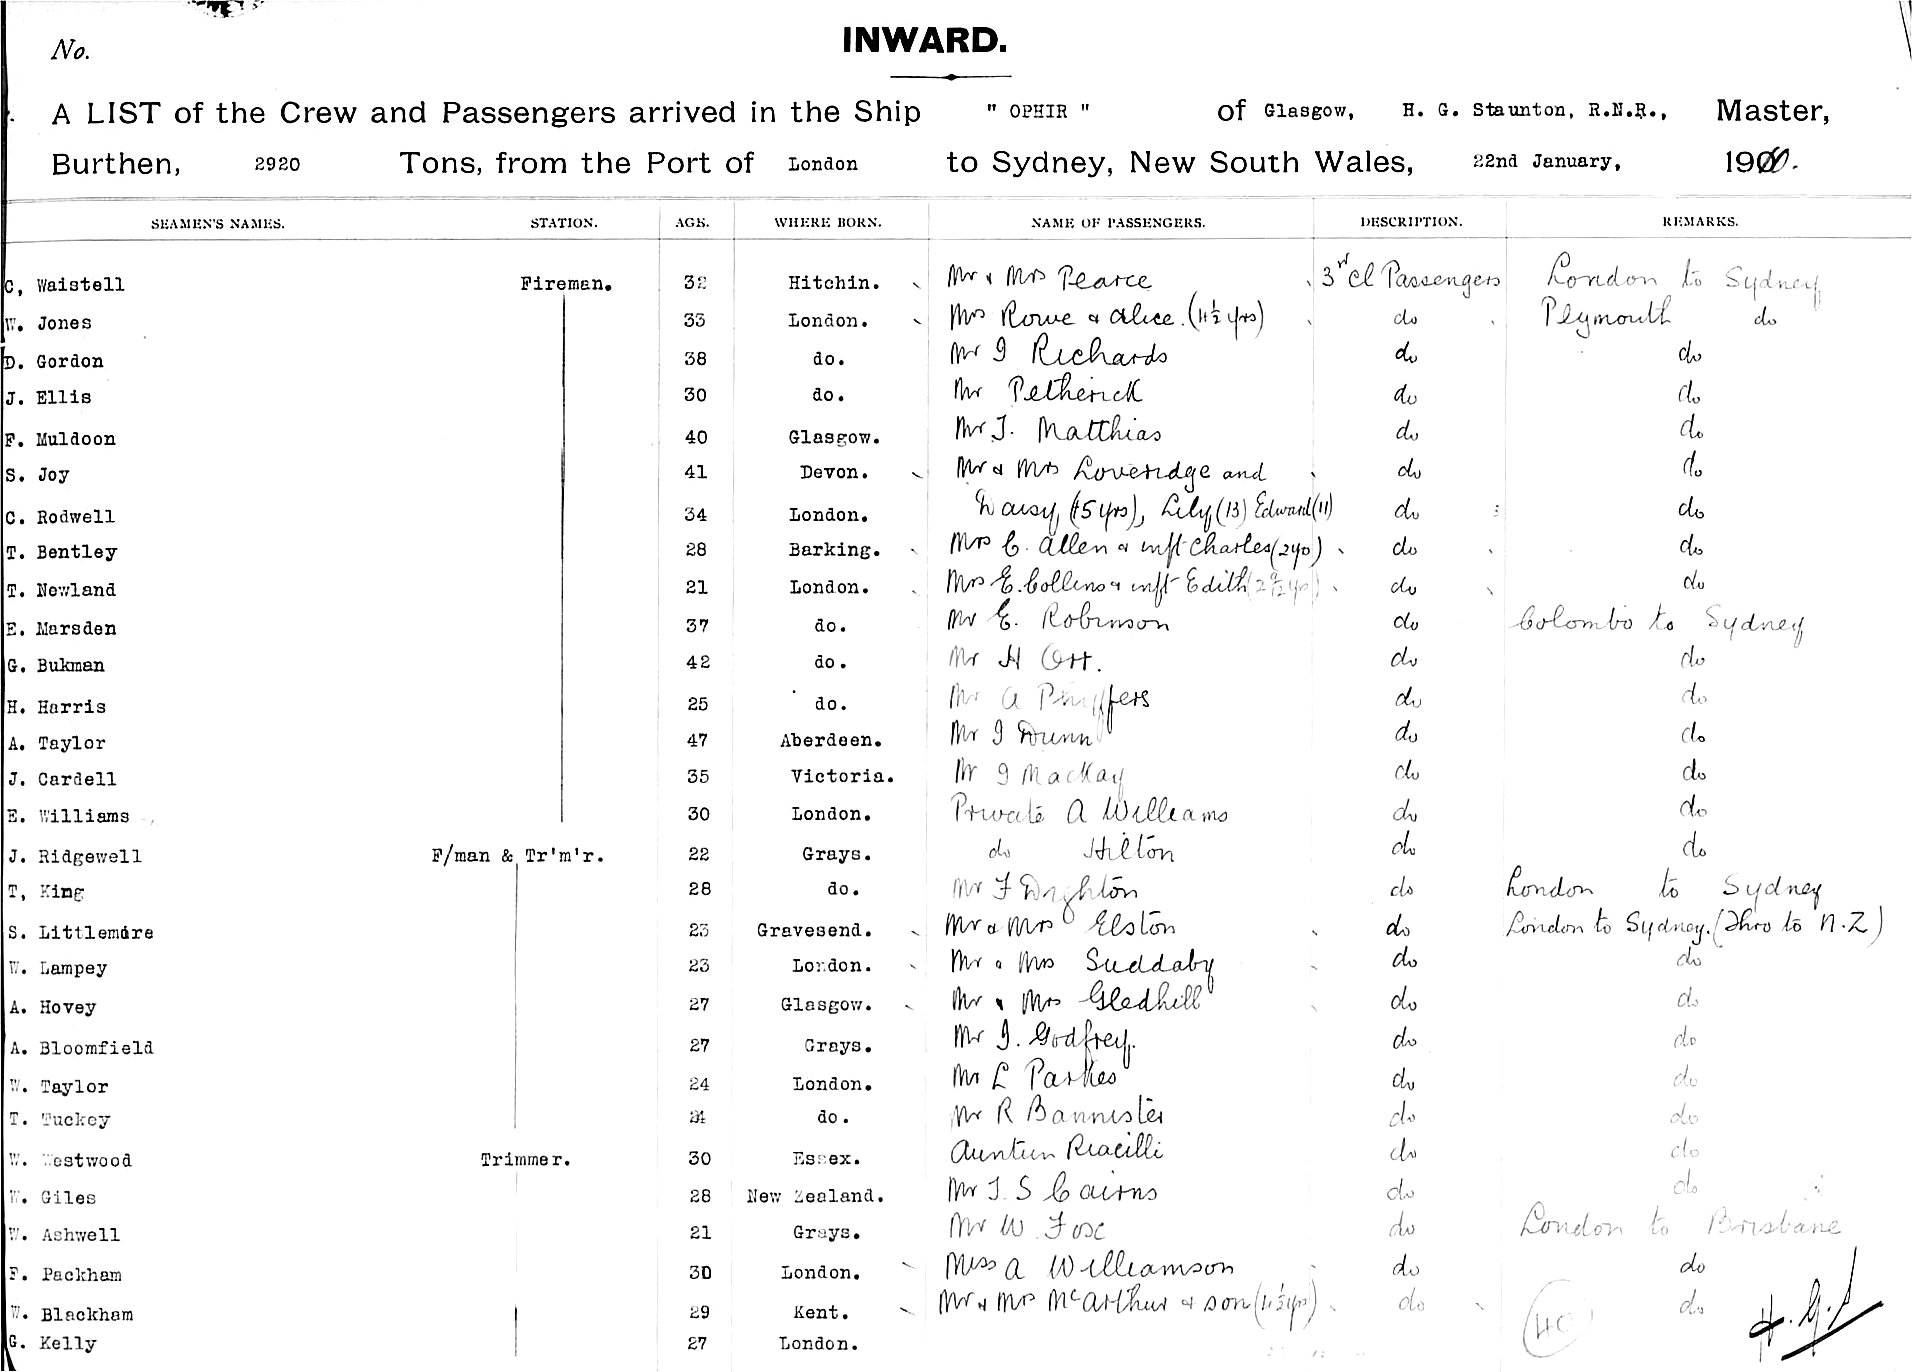 No.
INWARD.
A LIST of the Crew and Passengers arrived in the Ship " OPHIR " of Glasgow, H. G. Staunton, R.N.R., Master,
Burthen, 2920 Tons, from the Port of London to Sydney, New South Wales, 22nd January, 1900.
SEAMEN'S NAMES. STATION. AGE. WHERE BORN. NAME OF PASSENGERS. DESCRIPTION. REMARKS.
C, Waistell Fireman. 32 Hitchin. Mr & Mrs Pearce 3rd Cl Passengers London to Sydney
W. Jones 33 London. Mrs Rowe & Alice. (1½ yrs) do Plymouth do
D. Gordon 38 do. Mr J Richards do do
J. Ellis 30 do. Mr Petherick do do
F. Muldoon 40 Glasgow. Mr J. Matthias do do
S. Joy 41 Devon. Mr & Mrs Loveridge and do do
C. Rodwell 34 London. Daisy, (15 yrs), Lily (13) Edward (11) do do
T. Bentley 28 Barking. Mrs C. Allen & inft Charles (2yo) do do
T. Newland 21 London. Mrs E. Collins & inft Edith do do
E. Marsden 37 do. Mr E. Robinson do Colombo to Sydney
G. Bukman 42 do. Mr H Ott. do do
H. Harris 25 do. Mr A do do
A. Taylor 47 Aberdeen. Mr J Dunn do do
J. Cardell 35 Victoria. Mr J MacKay do do
E. Williams 30 London. Private A Williams do do
J. Ridgewell F/man & Tr'm'r. 22 Grays. do Hilton do do
T, King 28 do. Mr F do London to Sydney
S. Littlemore 23 Gravesend. Mr & Mrs Elston do London to Sydney. (Thro to N.Z)
W. Lampey 23 London. Mr & Mrs Suddaby do do
A. Hovey 27 Glasgow. Mr & Mrs Gledhill do do
A. Bloomfield 27 Grays. Mr J. Godfrey. do do
W. Taylor 24 London. Mr L Parkes do do
T. Tuckey do. Mr R Bannister do do
W. Westwood Trimmer. 30 Essex. do do
W. Giles 28 New Zealand. Mr J. S Cairns do do
W. Ashwell 21 Grays. Mr W. Fox do London to Brisbane
F. Packham 30 London. Miss A Williamson do do
W. Blackham 29 Kent. Mr & Mrs McArthur & son (1½ yrs) do do
G. Kelly 27 London. 40 H.G.S